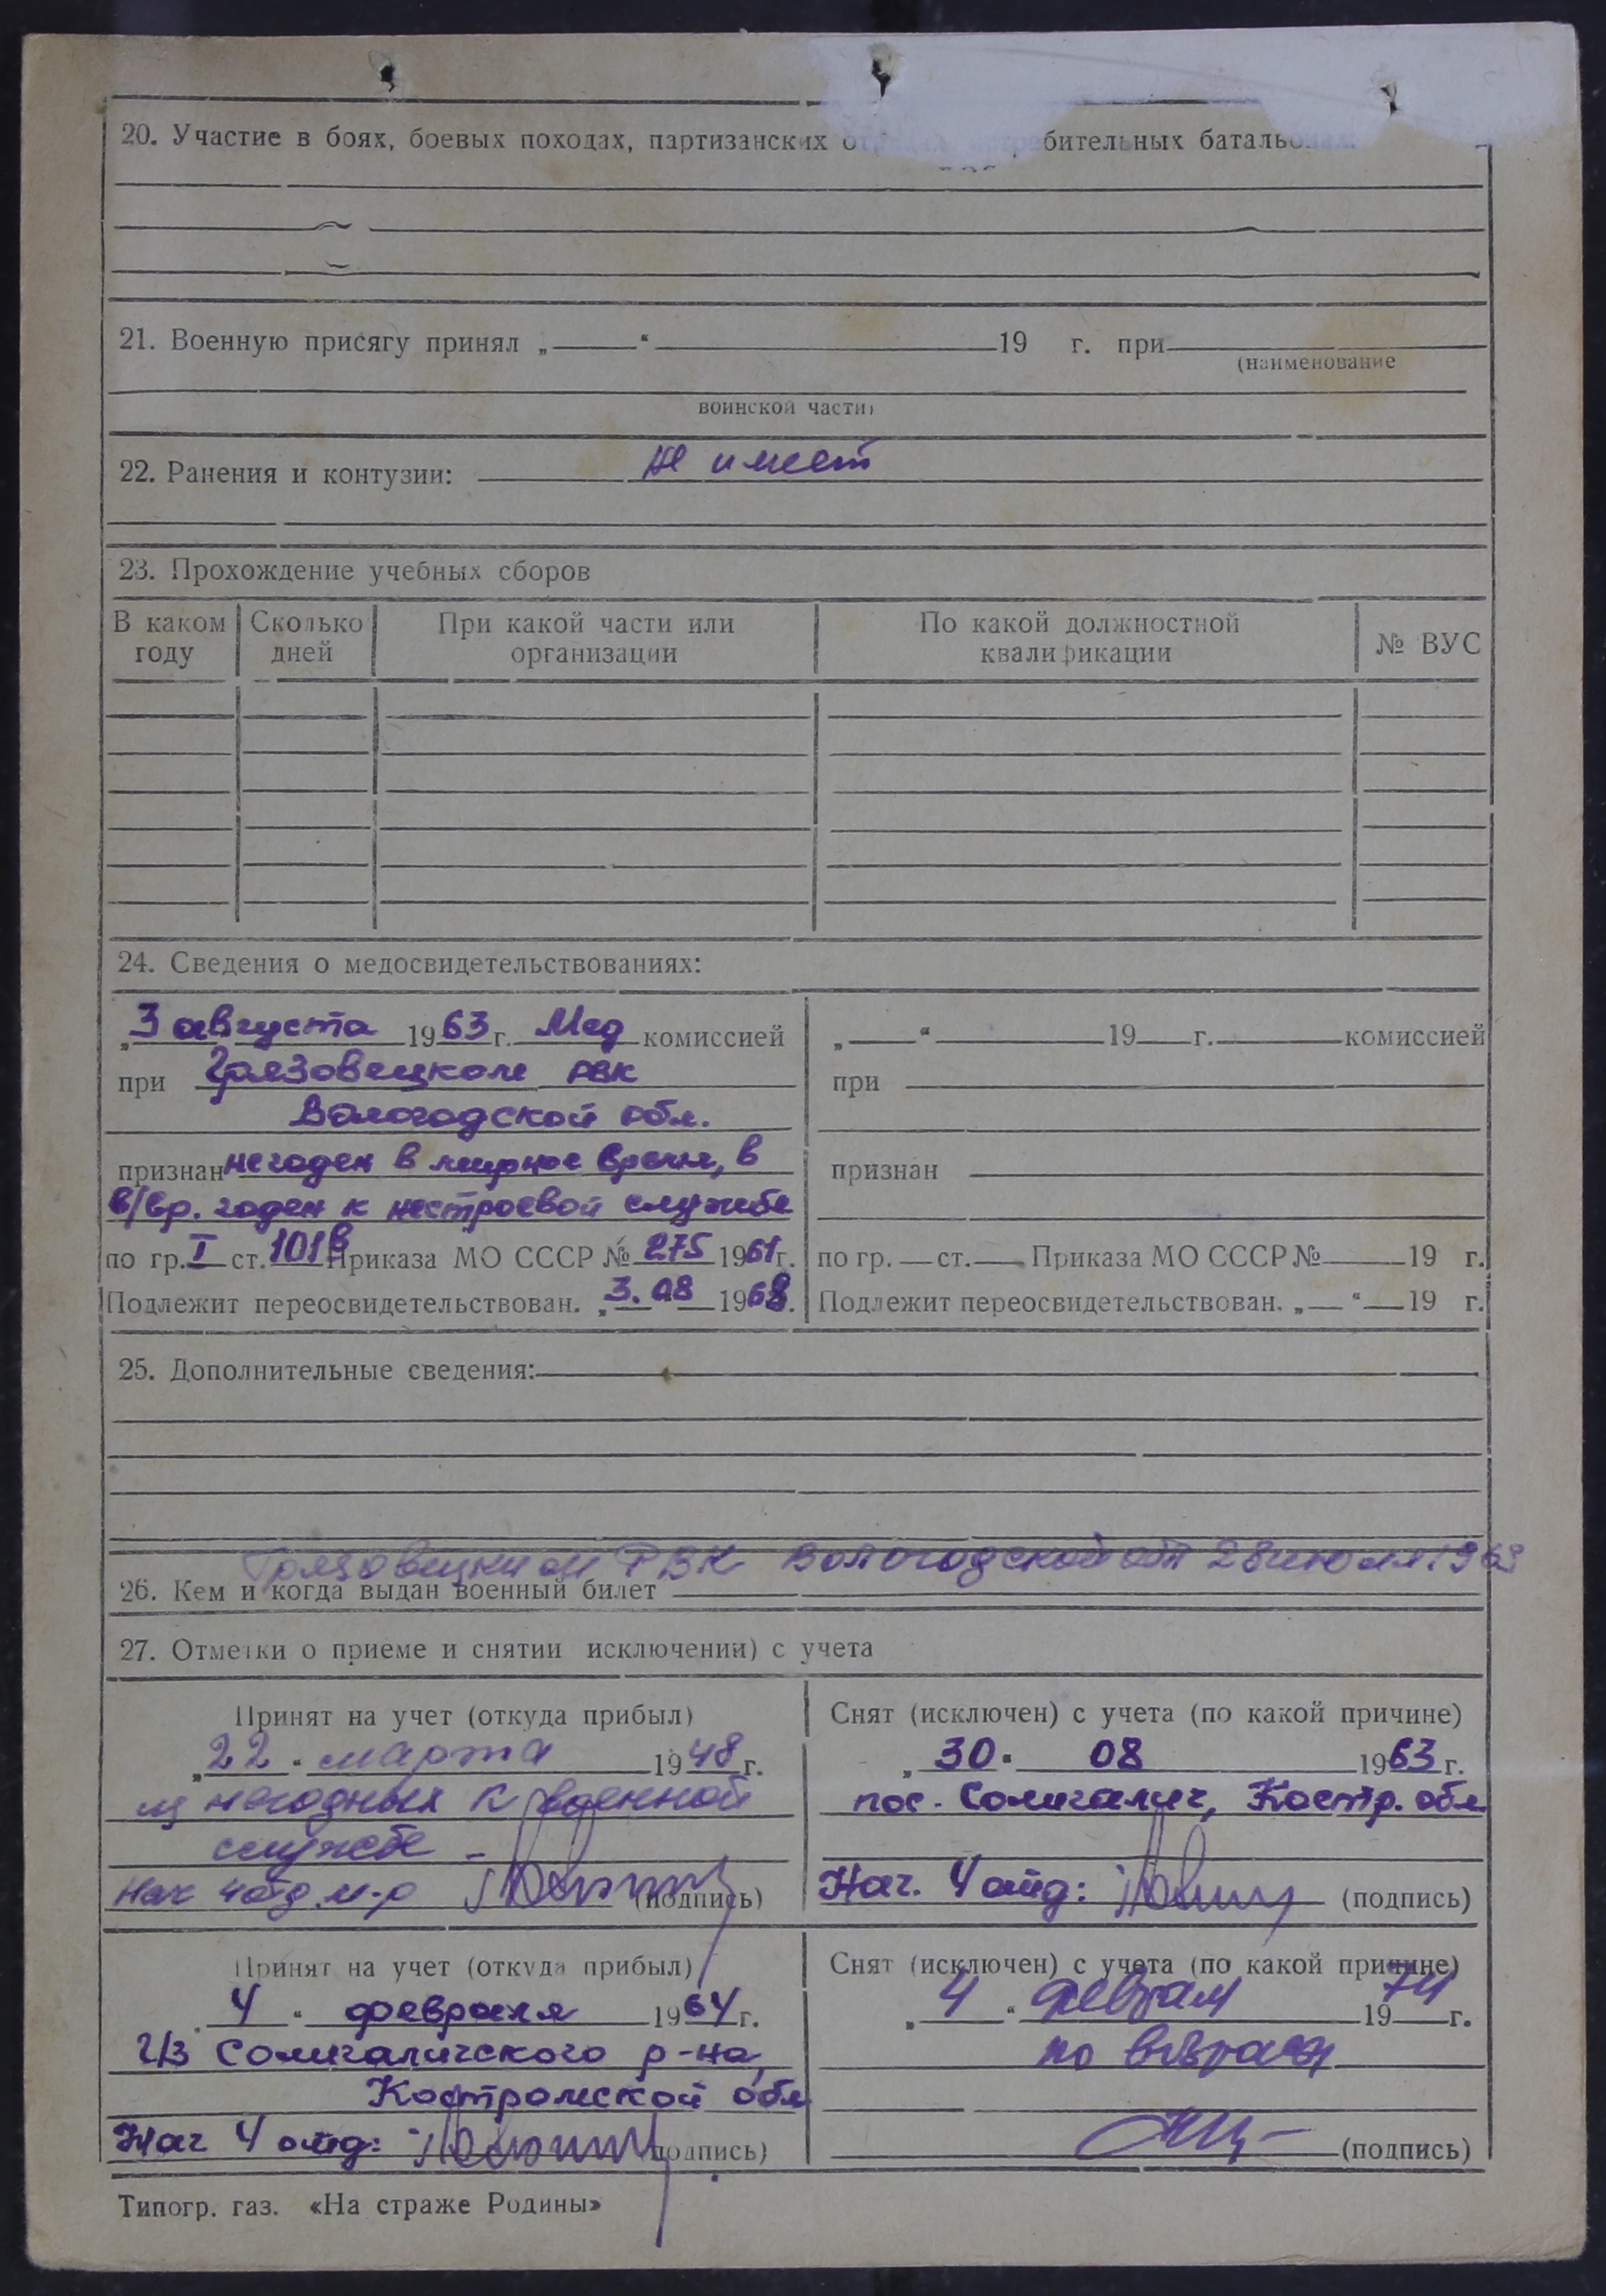 20. Участие в боях, боевых походах, партизанских отрядах, истребительных батальонах
21. Военную присягу принял „ “ 19 г. при
(наименование
воинской части)
22. Ранения и контузии: не имеет
23. Прохождение учебных сборов
В каком году Сколько дней При какой части или организации По какой должностной квалификации № ВУС
24. Сведения о медосвидетельствованиях:
„3 августа 1963 г. Мед комиссией
при Грязовецком РВК
Вологодской обл.
признан негоден в мирное время, в
в/вр. годен к нестроевой службе
по гр. I ст. 101в Приказа МО СССР № 275 1961 г.
Подлежит переосвидетельствован. „3.08 1968.
„ “ 19 г. комиссией
при
признан
по гр. ст. Приказа МО СССР № 19 г.
Подлежит переосвидетельствован. „ “ 19 г.
25. Дополнительные сведения:
Грязовецким РВК Вологодской обл 28 июля 1963
26. Кем и когда выдан военный билет
27. Отметки о приеме и снятии исключении) с учета
Принят на учет (откуда прибыл)
„22 “ марта 1948 г.
из негодных к военной
службе -
Нач 4 отд. м-р (подпись)
Снят (исключен) с учета (по какой причине)
„30 “ 08 1963 г.
пос. Солигалич, Костр. обл
Нач. 4 отд: (подпись)
Принят на учет (откуда прибыл)
4 “ февраля 1964 г.
из Солигаличского р-на,
Костромской обл
Нач 4 отд: подпись)
Снят (исключен) с учета (по какой причине)
„4 “ феврал 1974 г.
по возрасту
(подпись)
Типогр. газ. «На страже Родины»